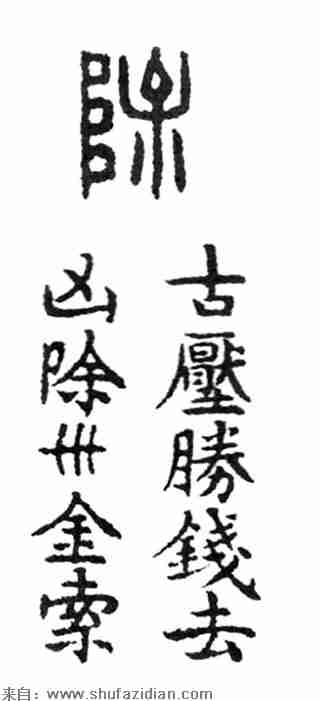 除
古壓勝錢去
凶除金索
来自：www.shufazidian.com